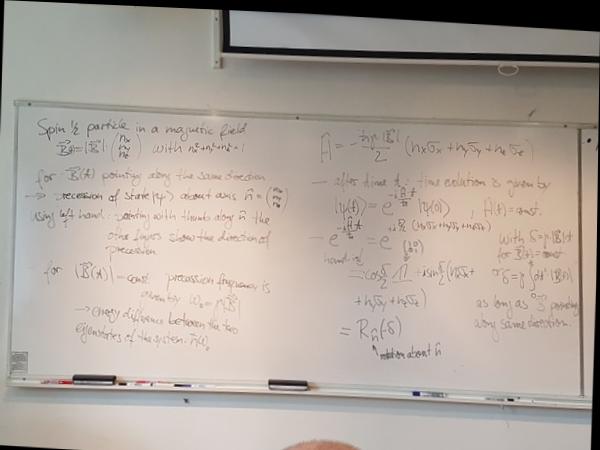 Spin ½ particle in a magnetic field
B⃗(t) = |B⃗| · (nx ny nz) with nx²+ny²+nz²=1
for B⃗(t) pointing along the same direction
→ precession of state |ψ⟩ about axis n̂ = (nx ny nz)
using left hand: pointing with thumb along n̂ the
other fingers show the direction of
precession
for |B⃗(t)| = const. precession frequency is
given by ω₀ = γ|B⃗|
→ energy difference between the two
eigenstates of the system: ħω₀
Ĥ = - ħγ|B⃗|/2 (nxσx + nyσy + nzσz)
— after time t: time evolution is given by
|ψ(t)⟩ = e^{-i Ĥt/ħ} |ψ(0)⟩ ; Ĥ(t) = const.
e^{-i Ĥt/ħ} = e^{i δ/2 (nxσx+nyσy+nzσz)}
with δ = γ|B⃗|t
for B⃗(t) = const
= cos δ/2 𝟙 + i sin δ/2 (nxσx +
+ nyσy + nzσz)
or δ = γ∫dt' |B⃗(t')|
as long as B⃗ pointing
along same direction.
= R_n̂(-δ)
rotation about n̂